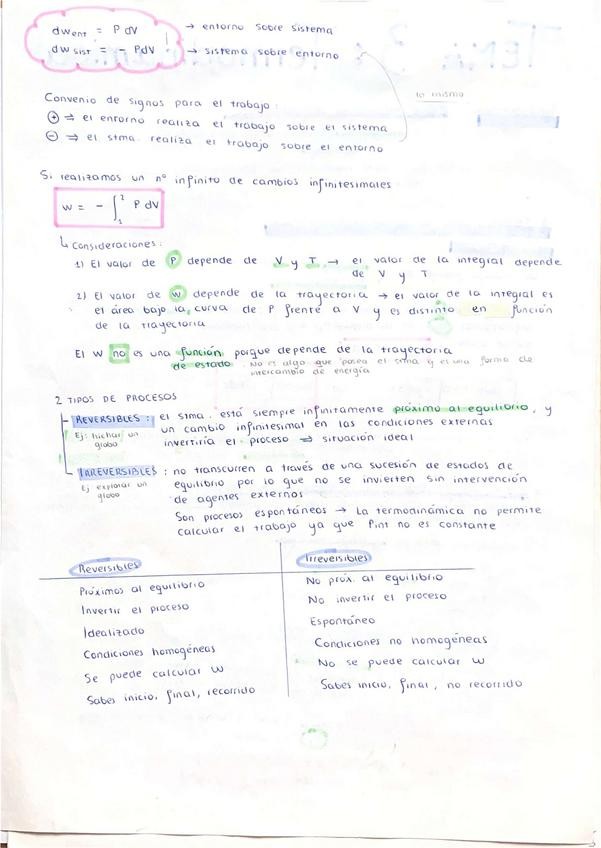 dw ent = P dV → entorno sobre sistema
dw sist = - PdV → sistema sobre entorno
lo mismo
Convenio de signos para el trabajo:
⊕ ⇒ el entorno realiza el trabajo sobre el sistema
⊖ ⇒ el stma. realiza el trabajo sobre el entorno
Si realizamos un nº infinito de cambios infinitesimales
w = - ∫₁² P dV
↳ Consideraciones:
1) El valor de P depende de V y T → el valor de la integral depende
de V y T
2) El valor de w depende de la trayectoria → el valor de la integral es
el área bajo la curva de P frente a V y es distinto en función
de la trayectoria
El W no es una función porque depende de la trayectoria
de estado. No es algo que posea el stma y es una forma de
intercambio de energía
2 TIPOS DE PROCESOS
REVERSIBLES: el stma. está siempre infinitamente próximo al equilibrio, y
Ej: hichar un globo
un cambio infinitesimal en las condiciones externas
invertiría el proceso ⇒ situación ideal
IRREVERSIBLES: no transcurren a través de una sucesión de estados de
Ej explorar un globo
equilibrio por lo que no se invierten sin intervención
de agentes externos
Son procesos espontáneos → La termodinámica no permite
calcular el trabajo ya que Pint no es constante
Reversibles
Irreversibles
Próximos al equilibrio
No próx. al equilibrio
Invertir el proceso
No invertir el proceso
Idealizado
Espontáneo
Condiciones homogéneas
Condiciones no homogéneas
Se puede calcular W
No se puede calcular W
Sabes inicio, final, recorrido
Sabes inicio, final, no recorrido